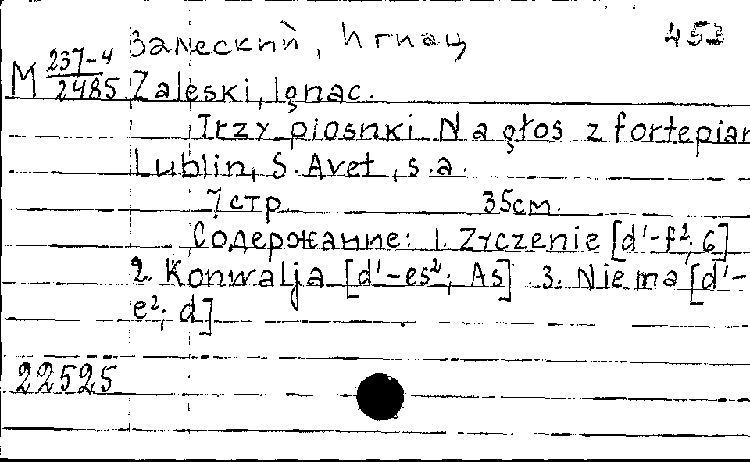 Залеский, Игнац 453
М 237-4/2485 Zaleski, Ignac.
Trzy piosnki Na głos z fortepian
Lublin, S. Avet, s.a.
7 стр 35см.
Содержание: 1. Zyczenie [d'-f²; G]
2. Konwalja [d'-es²; As] 3. Niema [d'-
e²; d]
22525